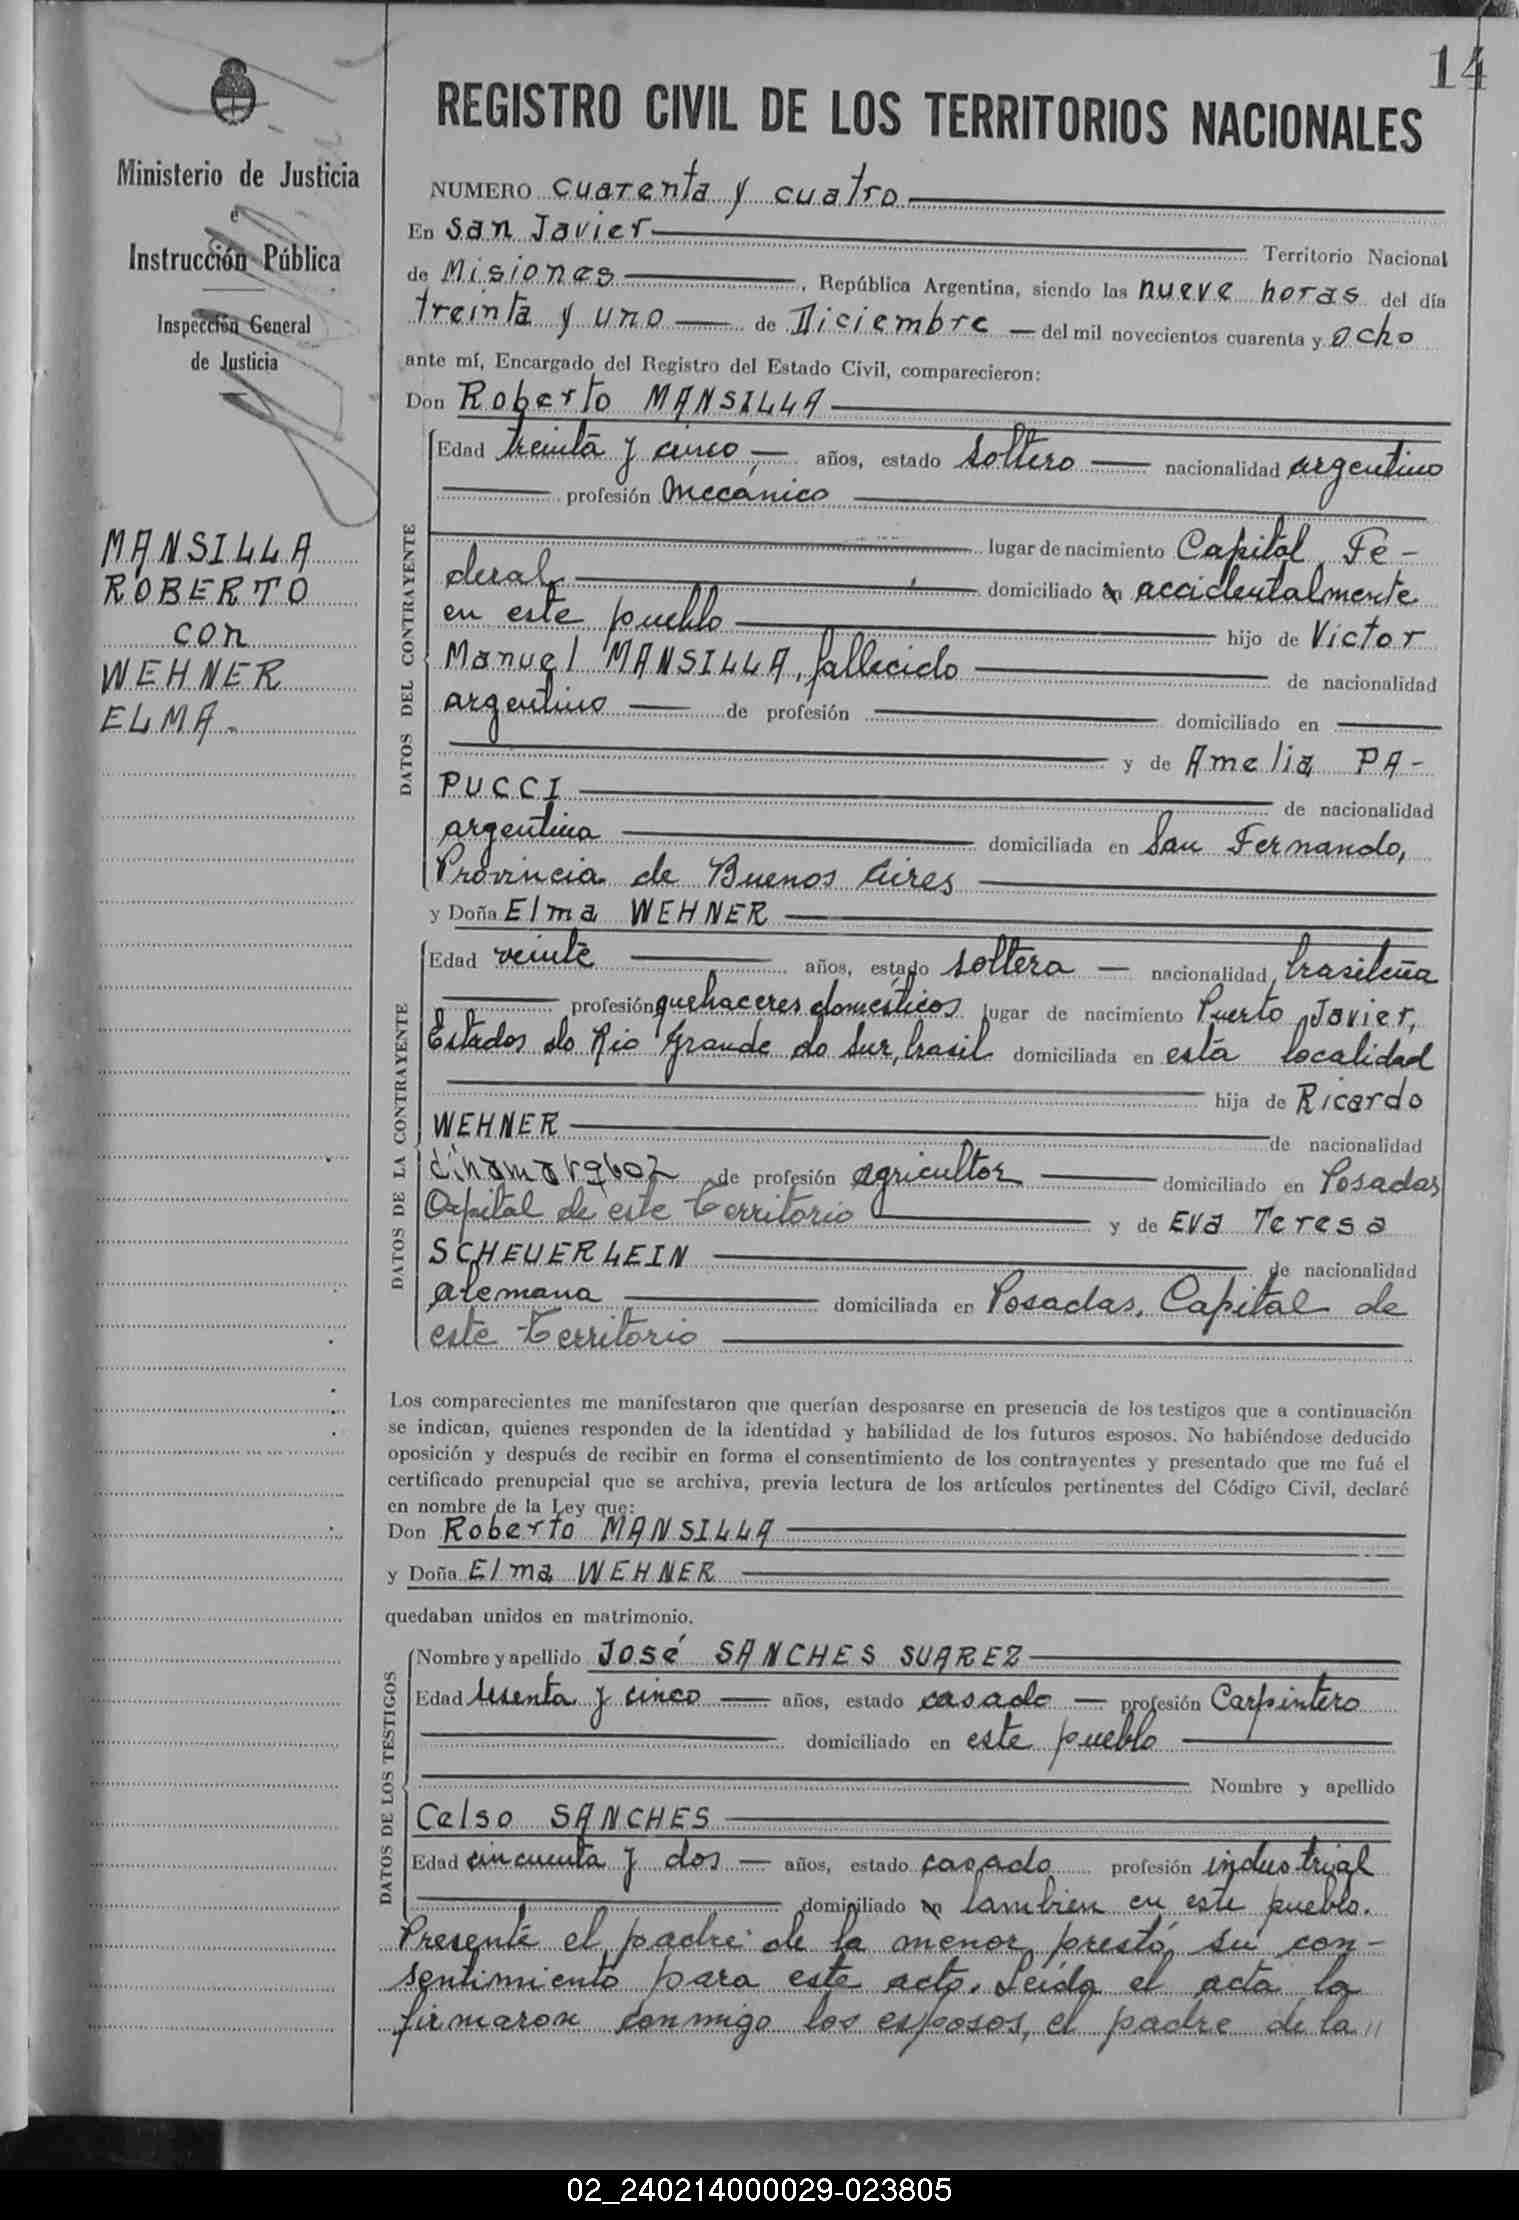 14
Ministerio de Justicia
e
Instrucción Pública
Inspección General
de Justicia
MANSILLA
ROBERTO
con
WEHNER
ELMA.
REGISTRO CIVIL DE LOS TERRITORIOS NACIONALES
NUMERO cuarenta y cuatro
En San Javier Territorio Nacional
de Misiones, República Argentina, siendo las nueve horas del día
treinta y uno de Diciembre del mil novecientos cuarenta y ocho
ante mí, Encargado del Registro del Estado Civil, comparecieron:
Don Roberto MANSILLA
DATOS DEL CONTRAYENTE
Edad treinta y cinco, años, estado soltero nacionalidad argentino
profesión mecánico
lugar de nacimiento Capital Fe-
deral domiciliado en accidentalmente
en este pueblo hijo de Victor
Manuel MANSILLA, fallecido de nacionalidad
argentino de profesión domiciliado en
y de Amelia PA-
PUCCI de nacionalidad
argentina domiciliada en San Fernando,
Provincia de Buenos Aires
y Doña Elma WEHNER
DATOS DE LA CONTRAYENTE
Edad veinte años, estado soltera nacionalidad brasileña
profesión quehaceres domésticos lugar de nacimiento Puerto Javier,
Estados do Rio Grande do Sur, brasil domiciliada en esta localidad
hija de Ricardo
WEHNER de nacionalidad
de profesión agricultor domiciliado en Posadas
Capital de este Territorio y de Eva Teresa
SCHEUERLEIN de nacionalidad
alemana domiciliada en Posadas, Capital de
este Territorio
Los comparecientes me manifestaron que querían desposarse en presencia de los testigos que a continuación
se indican, quienes responden de la identidad y habilidad de los futuros esposos. No habiéndose deducido
oposición y después de recibir en forma el consentimiento de los contrayentes y presentado que me fué el
certificado prenupcial que se archiva, previa lectura de los artículos pertinentes del Código Civil, declaré
en nombre de la Ley que:
Don Roberto MANSILLA
y Doña Elma WEHNER
quedaban unidos en matrimonio.
DATOS DE LOS TESTIGOS
Nombre y apellido José SANCHES SUAREZ
Edad sesenta y cinco años, estado casado profesión Carpintero
domiciliado en este pueblo
Nombre y apellido
Celso SANCHES
Edad cincuenta y dos años, estado casado profesión industrial
domiciliado en tambien en este pueblo.
Presente el padre de la menor, prestó su con-
sentimiento para este acto. Leída el acta la
firmaron conmigo los esposos, el padre de la "
02_240214000029-023805